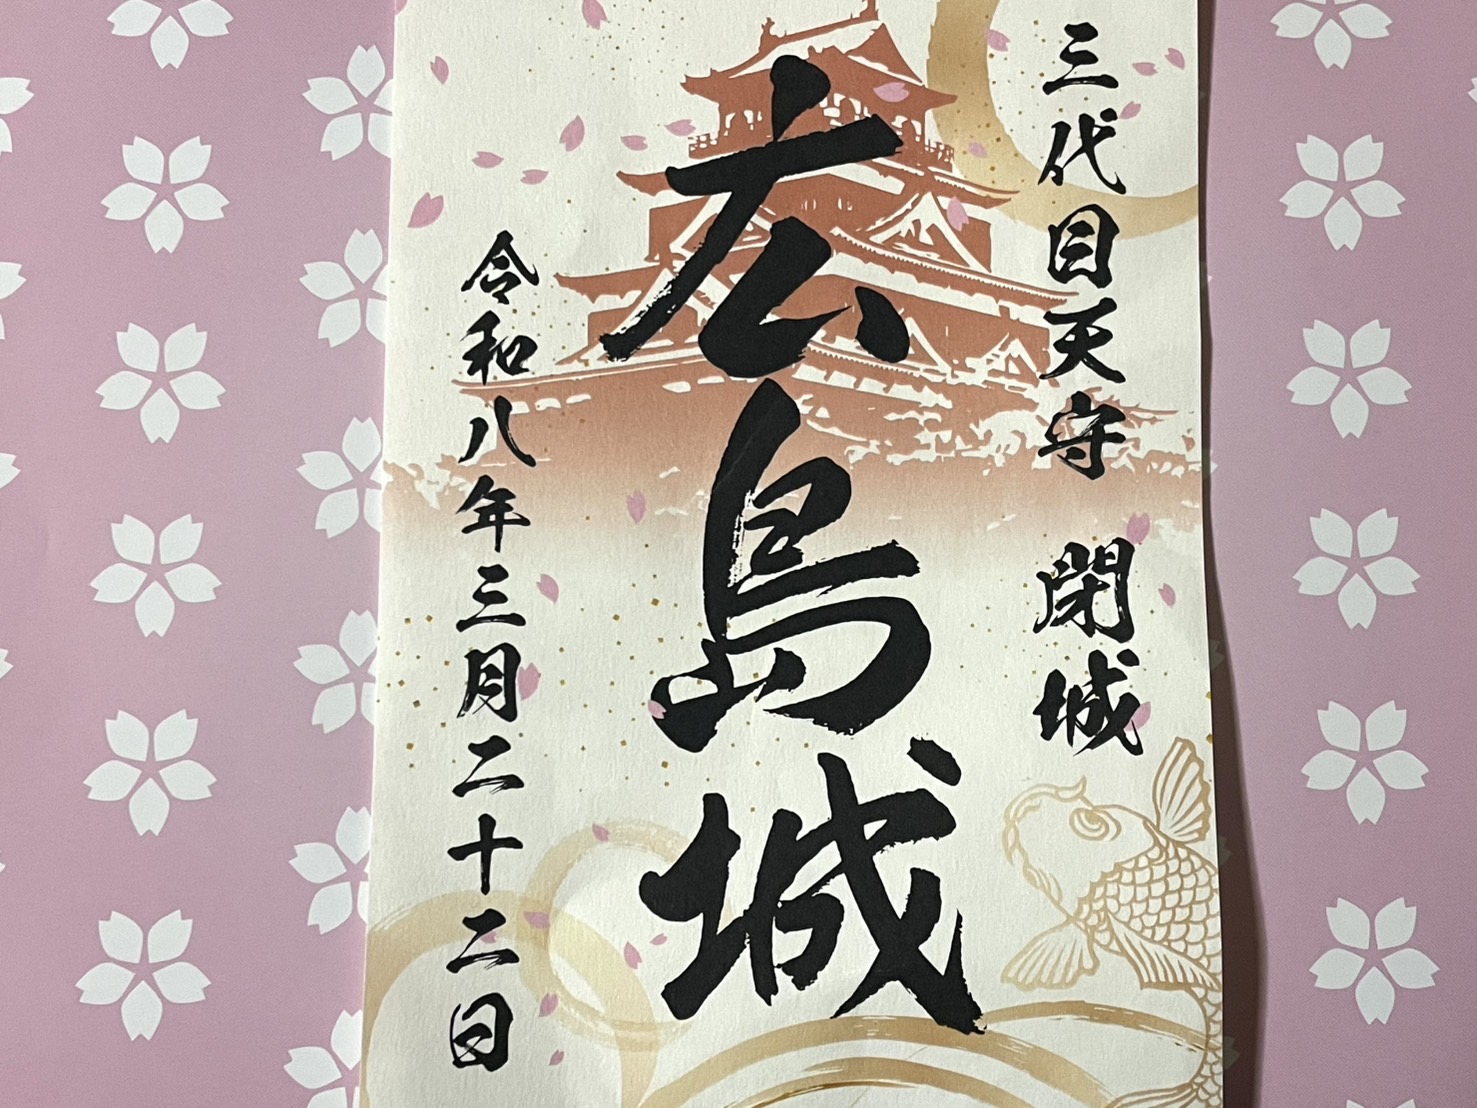 三代目天守 閉城
広島城
令和八年三月二十二日